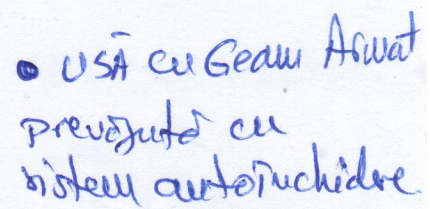 • UŞĂ cu Geam Armat
prevăzută cu
sistem autoînchidere